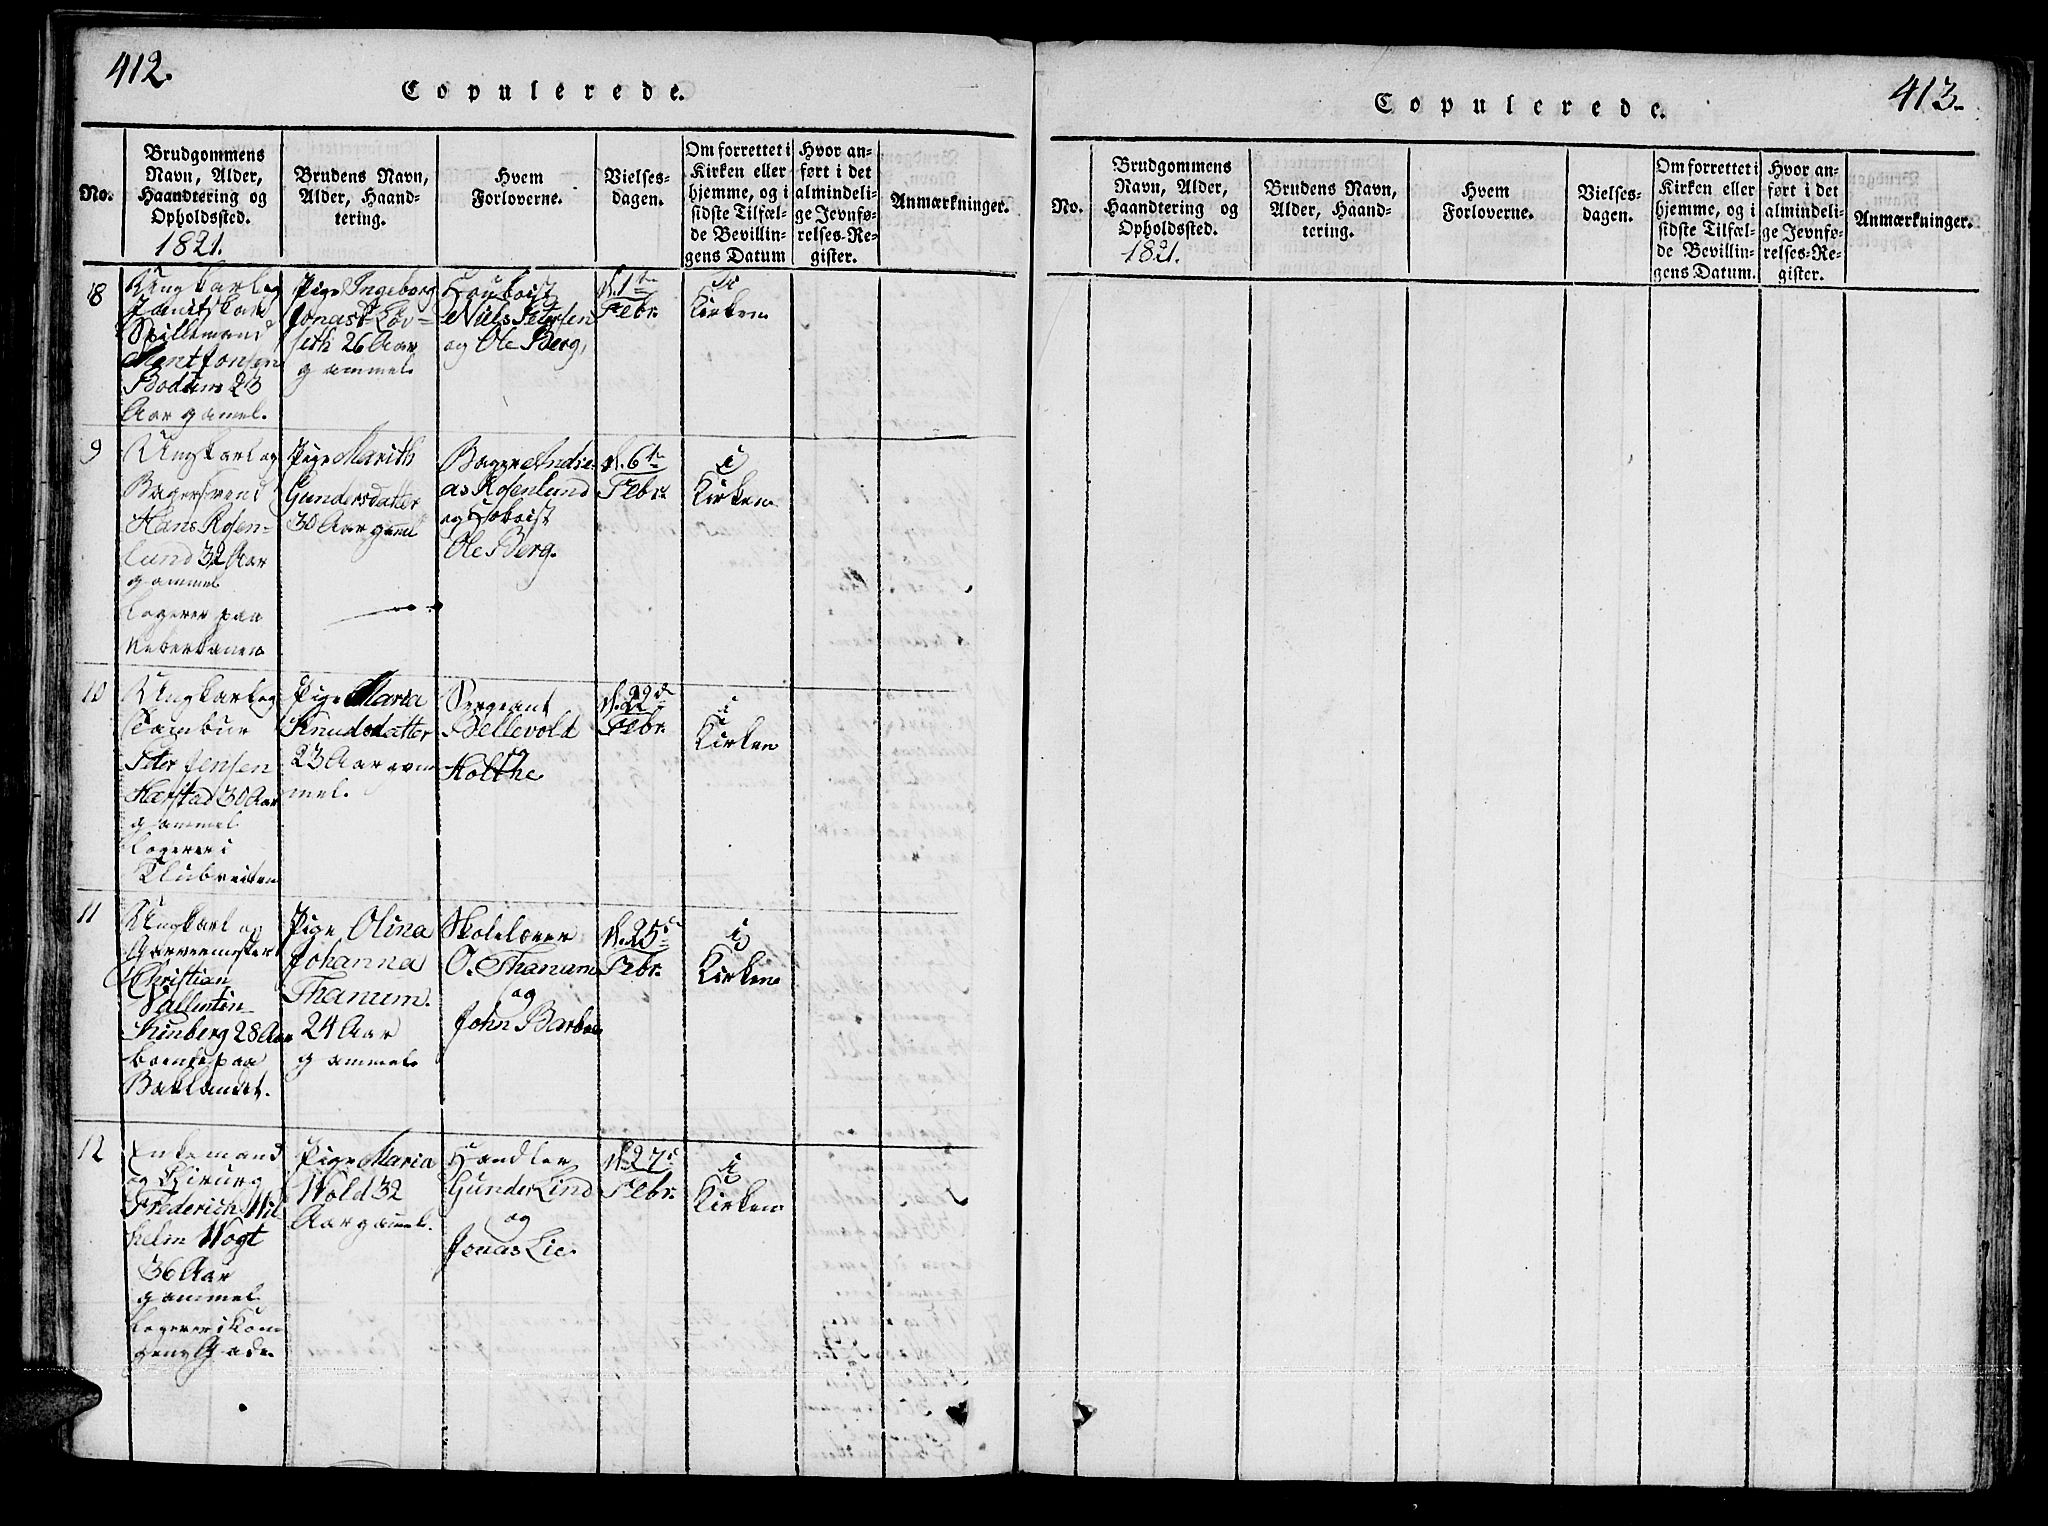 412.
Copulerede.
No.
Brudgommens
Navn, Alder,
Haandtering og
Opholdssted.
1821.
Brudens Navn,
Alder, Haand-
tering.
Hvem
Forloverne.
Vielses-
dagen.
Om forrettet i
Kirken eller
hjemme, og i
sidste Tilfæl-
de Bevillin-
gens Datum
Hvor an-
ført i det
almindeli-
ge Jevnfø-
relses-Re-
gister.
Anmærkninger.
8
Ungkarl og
Spillemand
Bent Jonsen
Bodum 23
Aar gamel.
Pige Ingeborg
Jonasd. Løv-
seth 26 Aar
gammel.
Houboist
Niels Petersen
og Ole Berg,
d. 1te
Febr.
i
Kirken
9
Ungkarl og
Bagersvend
Hans Rosen-
lund 32 Aar
gammel
logerer paa
Reberbanen
Pige Marith
Gundersdatter
30 Aar gamel
Bager Andre-
as Rosenlund
og Hoboist
Ole Berg.
d. 6te
Febr.
i
Kirken
10
Ungkarl og
Tambur
Peter Jensen
Harstad 30 Aar
gammel
logerer i
Pige Maria
Knudsdatter
23 Aar gam
mel.
Sergeant
Bellevold
Holthe
d. 22de
Febr.
i
Kirken
11
Ungkarl og
Garvermester
Christian
Vallentin
28 Aar
boende paa
Baklandet.
Pige Olina
Johanna
Thanum.
24 Aar
gammel
Skolelærer
O. Thanum
og
John Barbo
d. 25de
Febr.
i
Kirken
12
Enkemand
og Chirurg
Frederich Wil
helm Vogt
36 Aar
gammel
logerer i Kon
gens Gade
Pige Maria
Wold 32
Aar gamel.
Handler
Gunder Lind
og
Jonas Lie.
d. 27de
Febr.
i
Kirken
413.
Copulerede.
No.
Brudgommens
Navn, Alder,
Haandtering og
Opholdssted.
1821.
Brudens Navn,
Alder, Haand-
tering.
Hvem
Forloverne.
Vielses-
dagen.
Om forrettet i
Kirken eller
hjemme, og i
sidste Tilfæl-
de Bevillin-
gens Datum.
Hvor an-
ført i det
almindeli-
ge Jevnfø-
relses-Re-
gister.
Anmærkninger.